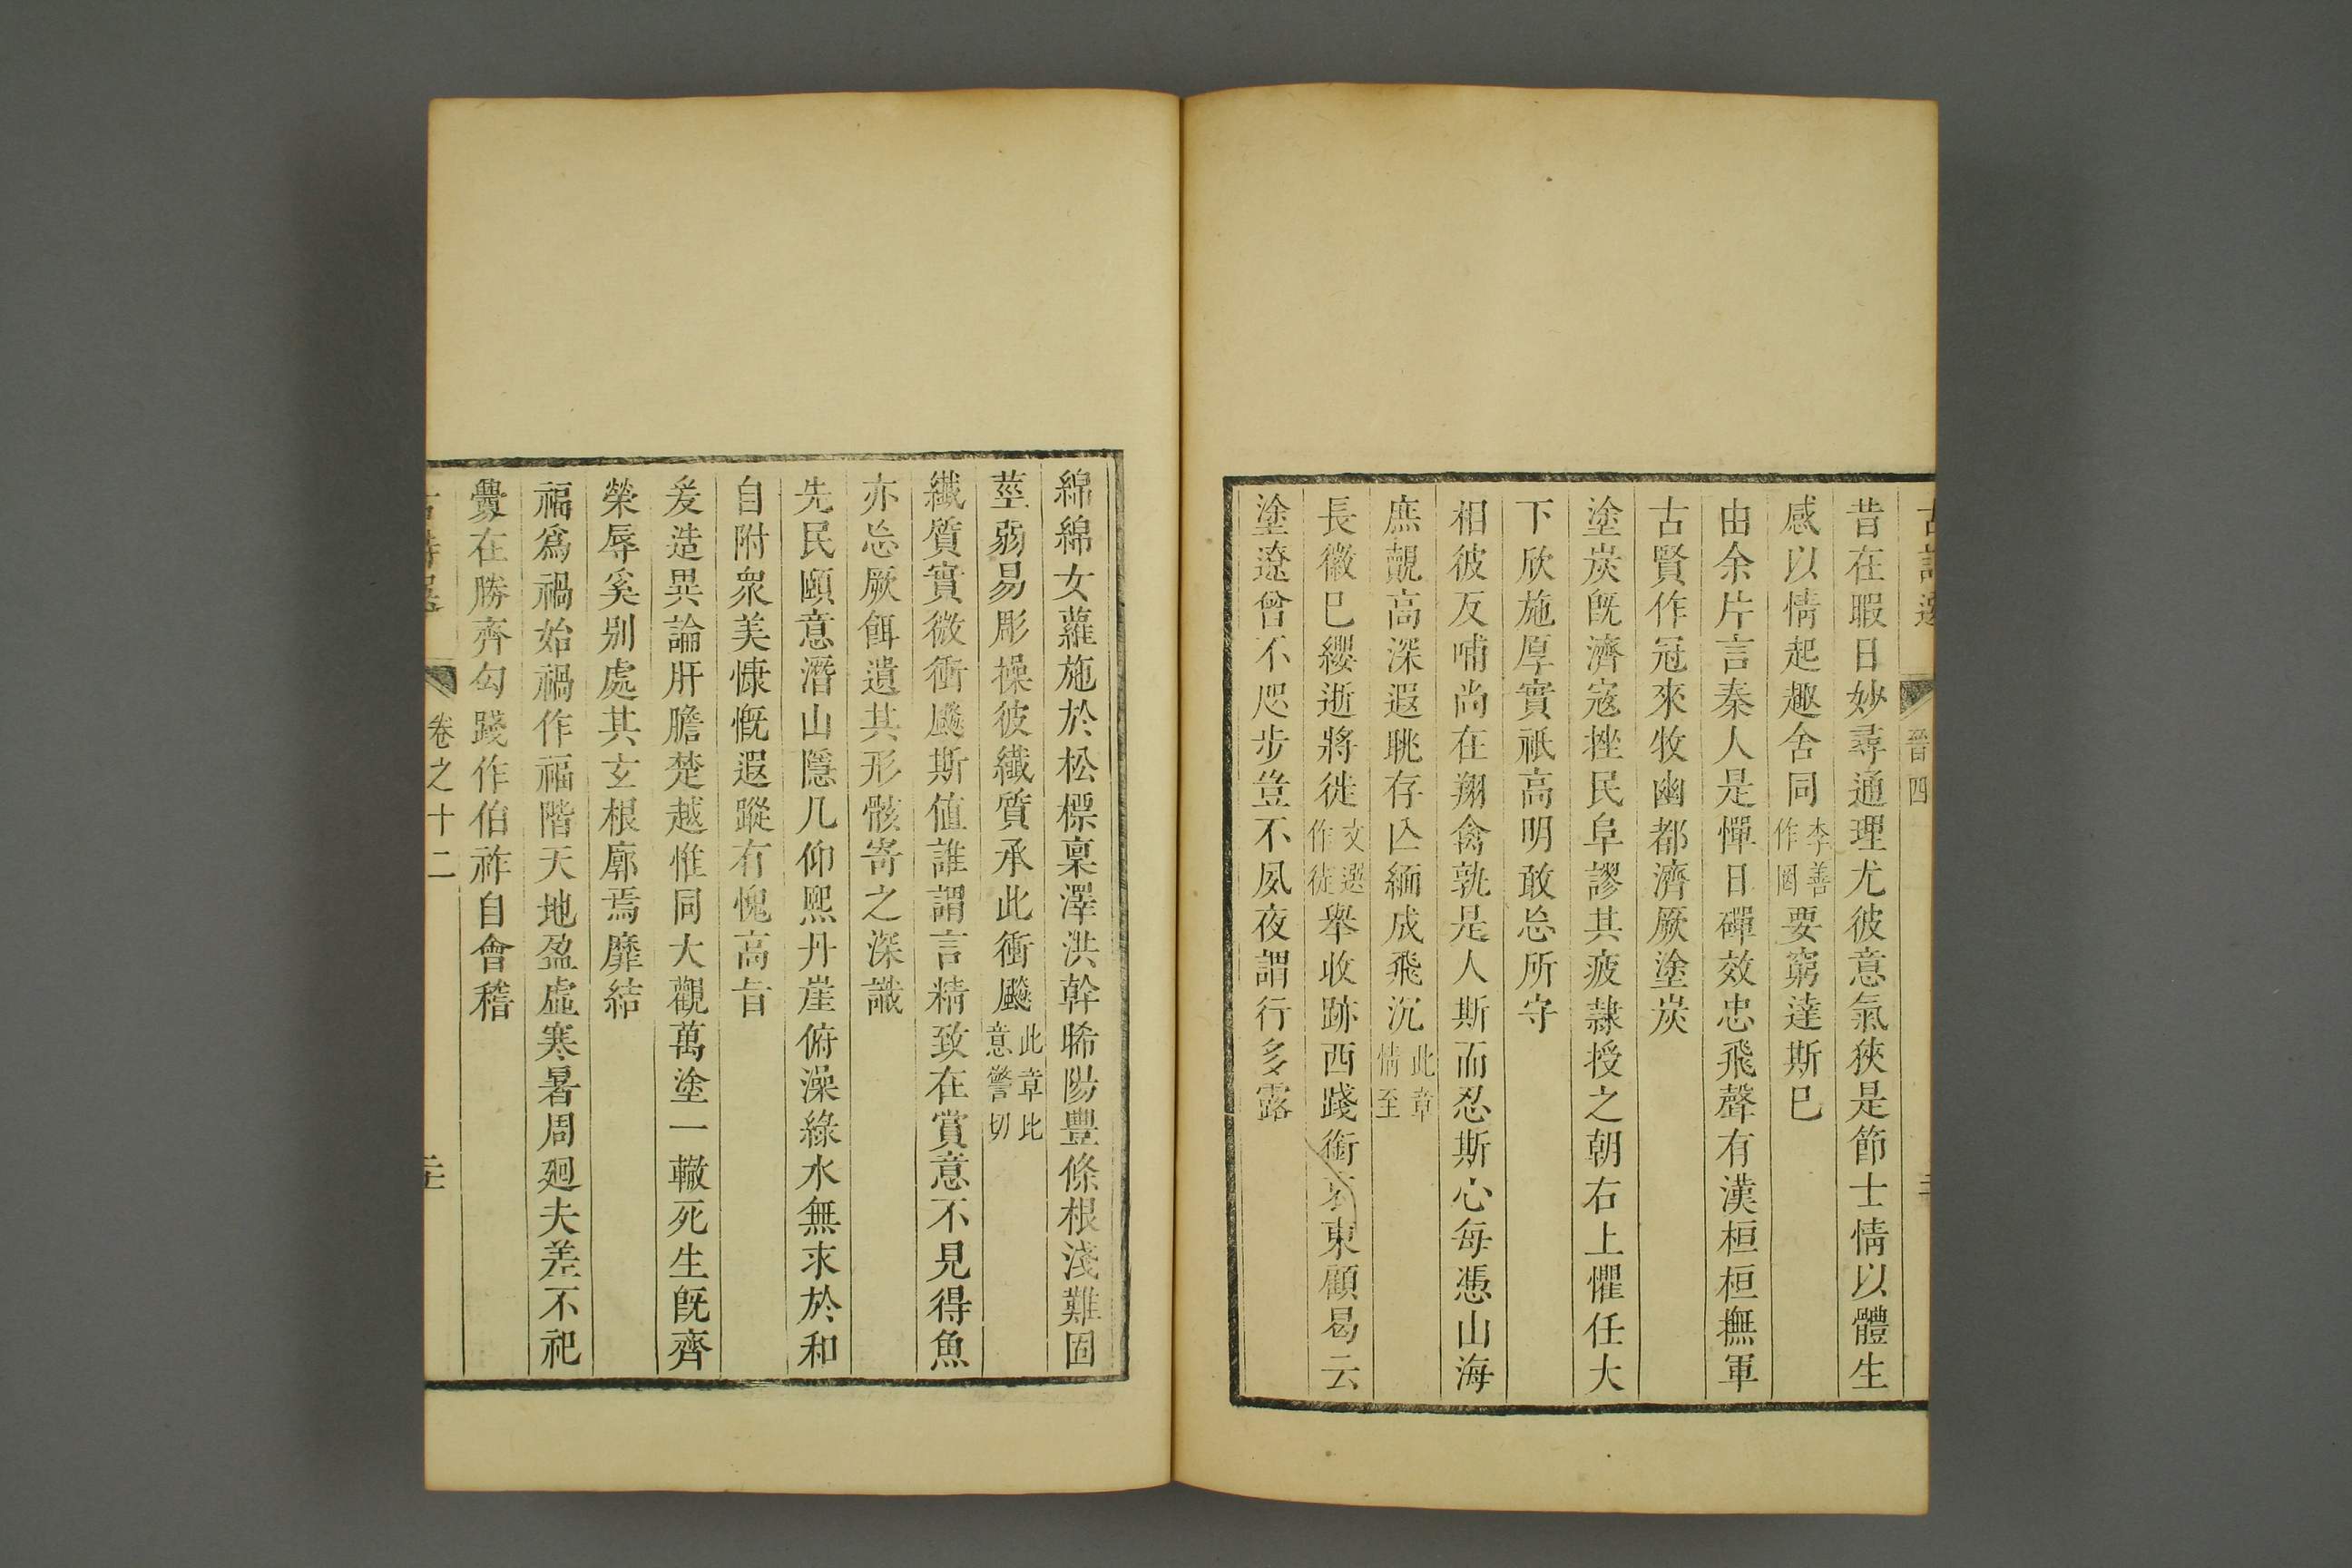 古詩選
晉四
昔在暇日妙尋通理尤彼意氣狹是節士情以體生
感以情起趣舍同李善作罔要窮達斯已
由余片言秦人是憚日磾效忠飛聲有漢桓桓撫軍
古賢作冠來牧幽都濟厥塗炭
塗炭旣濟寇挫民阜謬其疲隷授之朝右上懼任大
下欣施厚實祇高明敢忘所守
相彼反哺尚在翔禽孰是人斯而忍斯心每憑山海
庶覿高深遐眺存亾緬成飛沉此章情至
長徽已纓逝將徙文選作徒舉收跡西踐銜哀東顧曷云
塗遼曾不咫步豈不夙夜謂行多露
綿綿女蘿施於松標稟澤洪幹晞陽豐條根淺難固
莖弱易彫操彼纖質承此衝飈此章比意警切
纖質實微衝飈斯值誰謂言精致在賞意不見得魚
亦忘厥餌遺其形骸寄之深識
先民頤意潛山隱几仰熙丹崖俯澡綠水無求於和
自附衆美慷慨遐蹤有愧高旨
爰造異論肝膽楚越惟同大觀萬塗一轍死生旣齊
榮辱奚别處其玄根廓焉靡結
福爲禍始禍作福階天地盈虛寒暑周廻夫差不祀
釁在勝齊勾踐作伯祚自會稽
古詩選
卷之十二